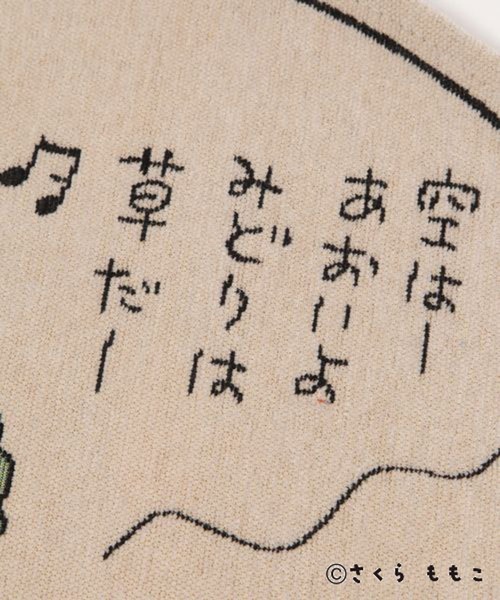 空はー
あおいよ
みどりは
草だー♪
©さくらももこ